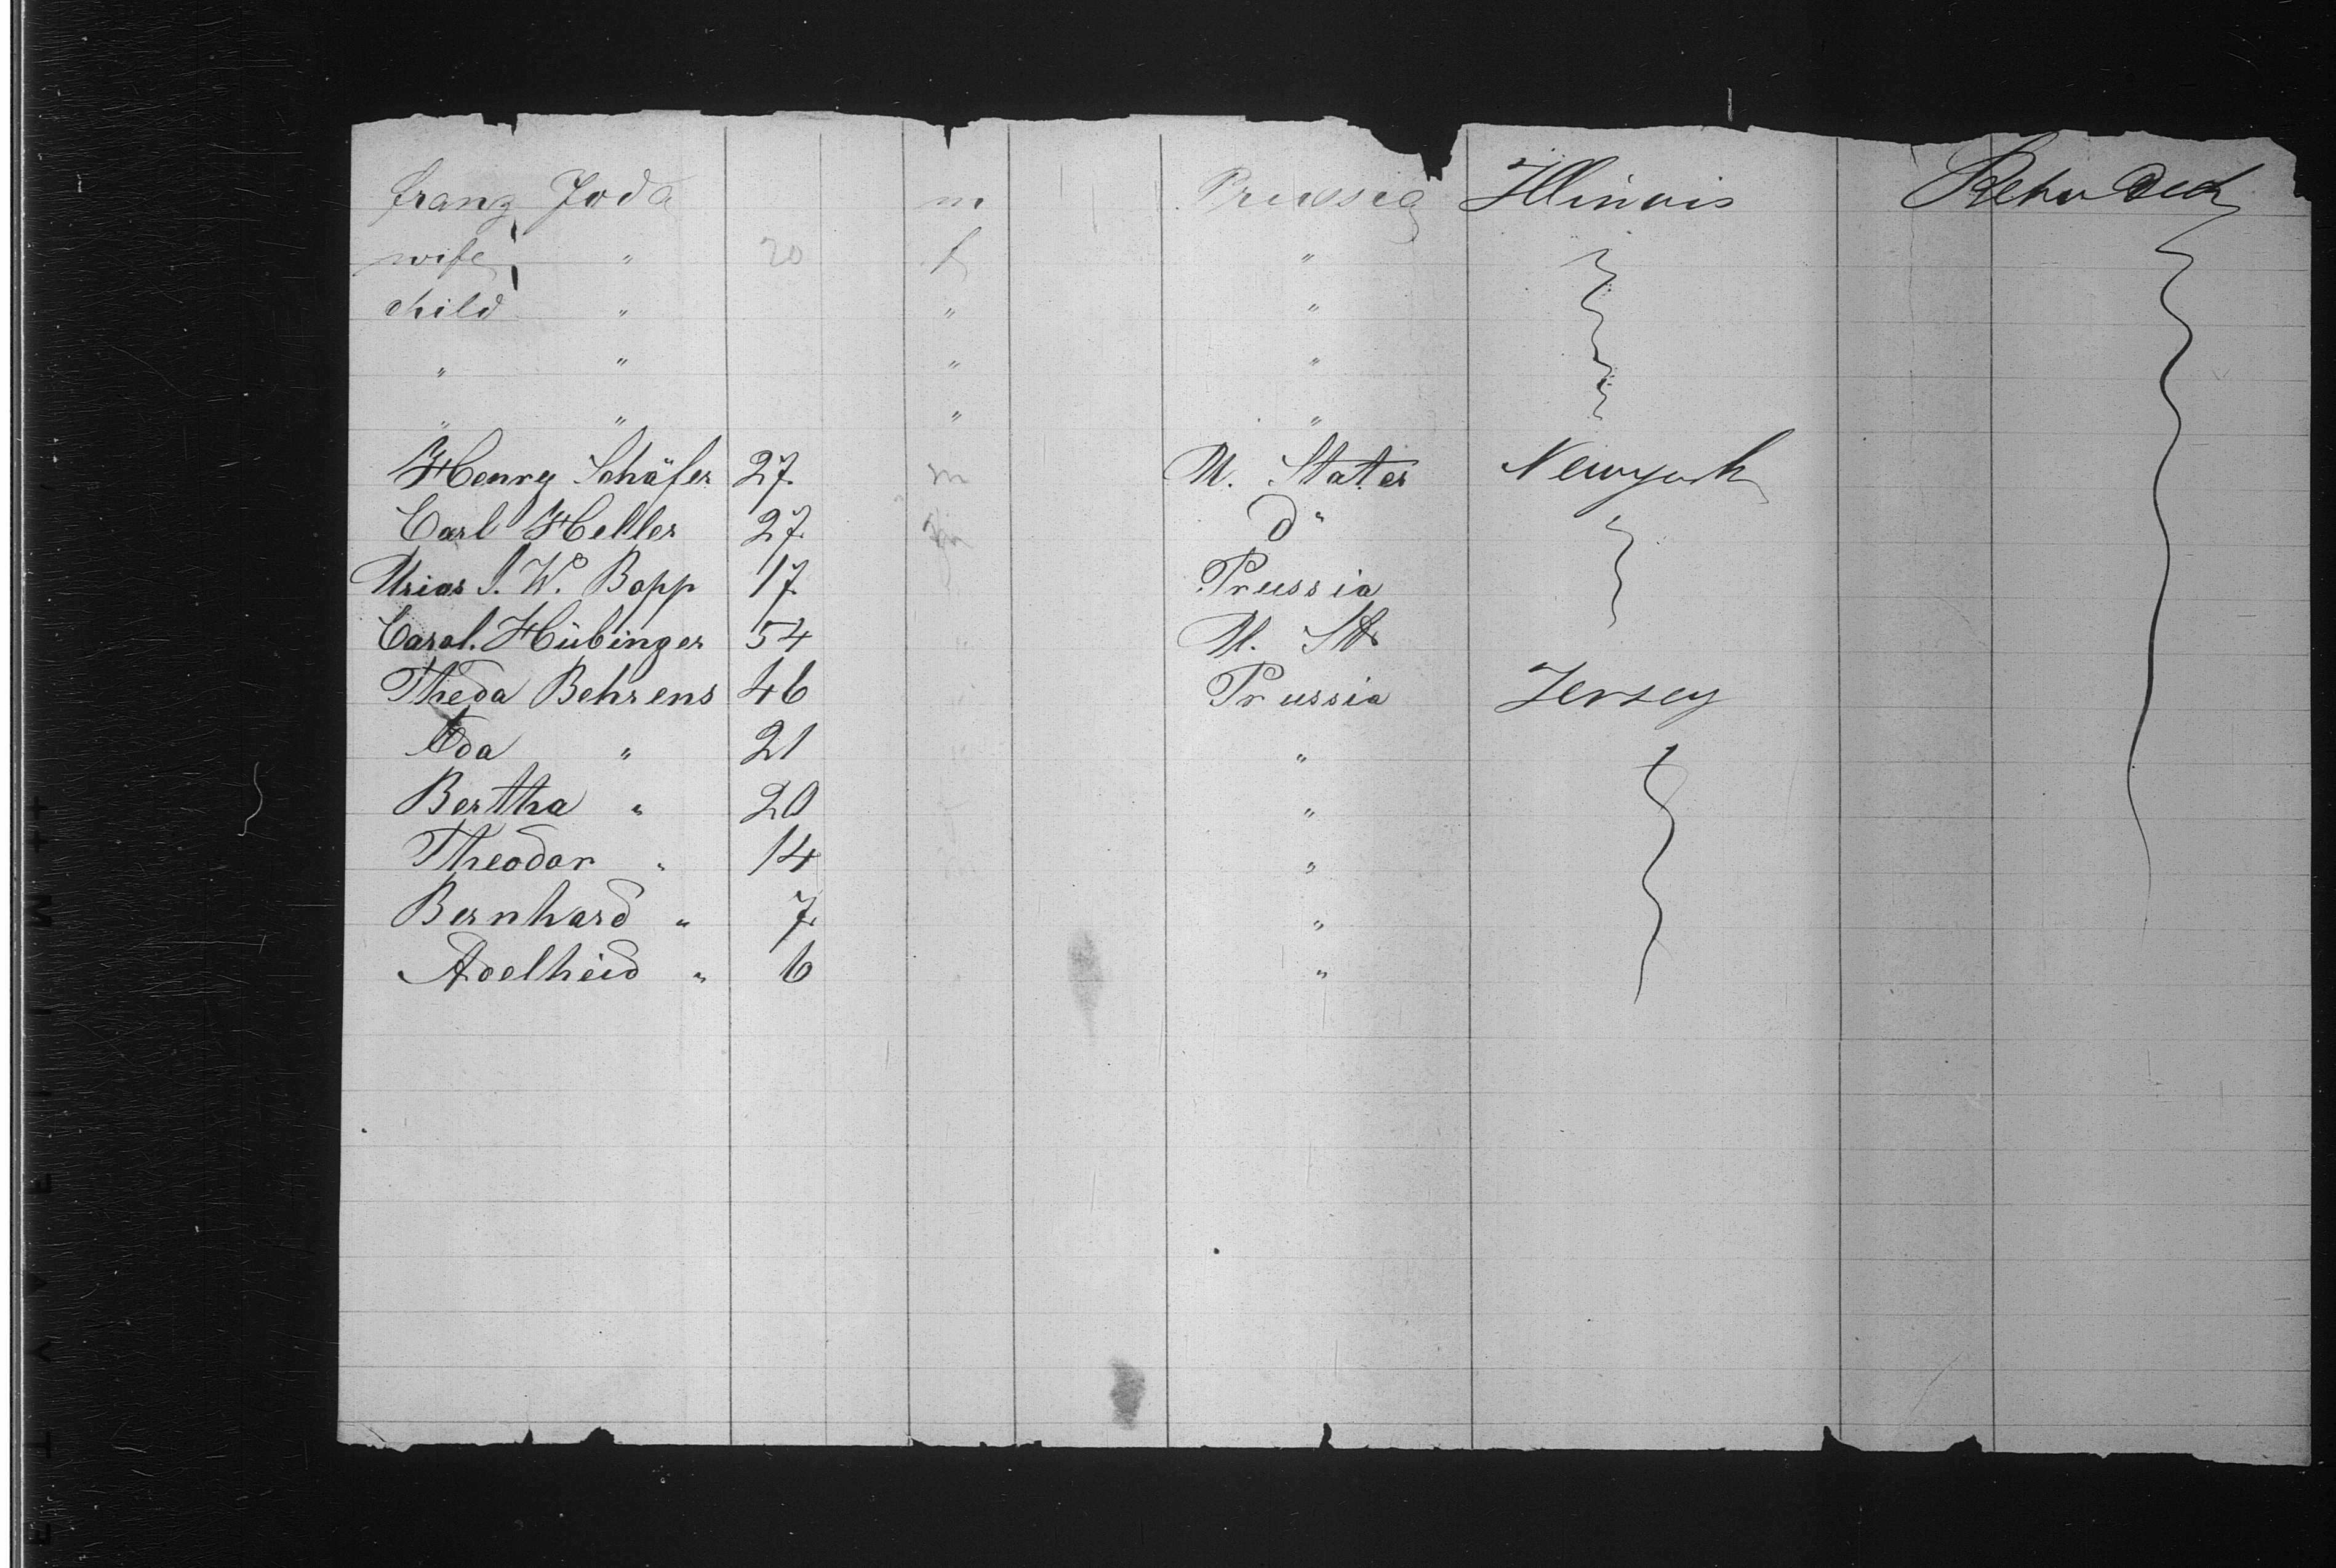 franz Joda m Prussia Illinois Betw Deck
wife " 20 f "
child " " "
" " " "
" " " "
Henry Schäfer 27 m U. States Newyork
Carl Heller 27 m do
Urias J. W. Bopp 17 Prussia
Carol. Hübinger 54 U. Sts
Theda Behrens 46 Prussia Jersey
Ada " 21 "
Bertha " 20 "
Theodor " 14 "
Bernhard " 7 "
Adelheid " 6 "